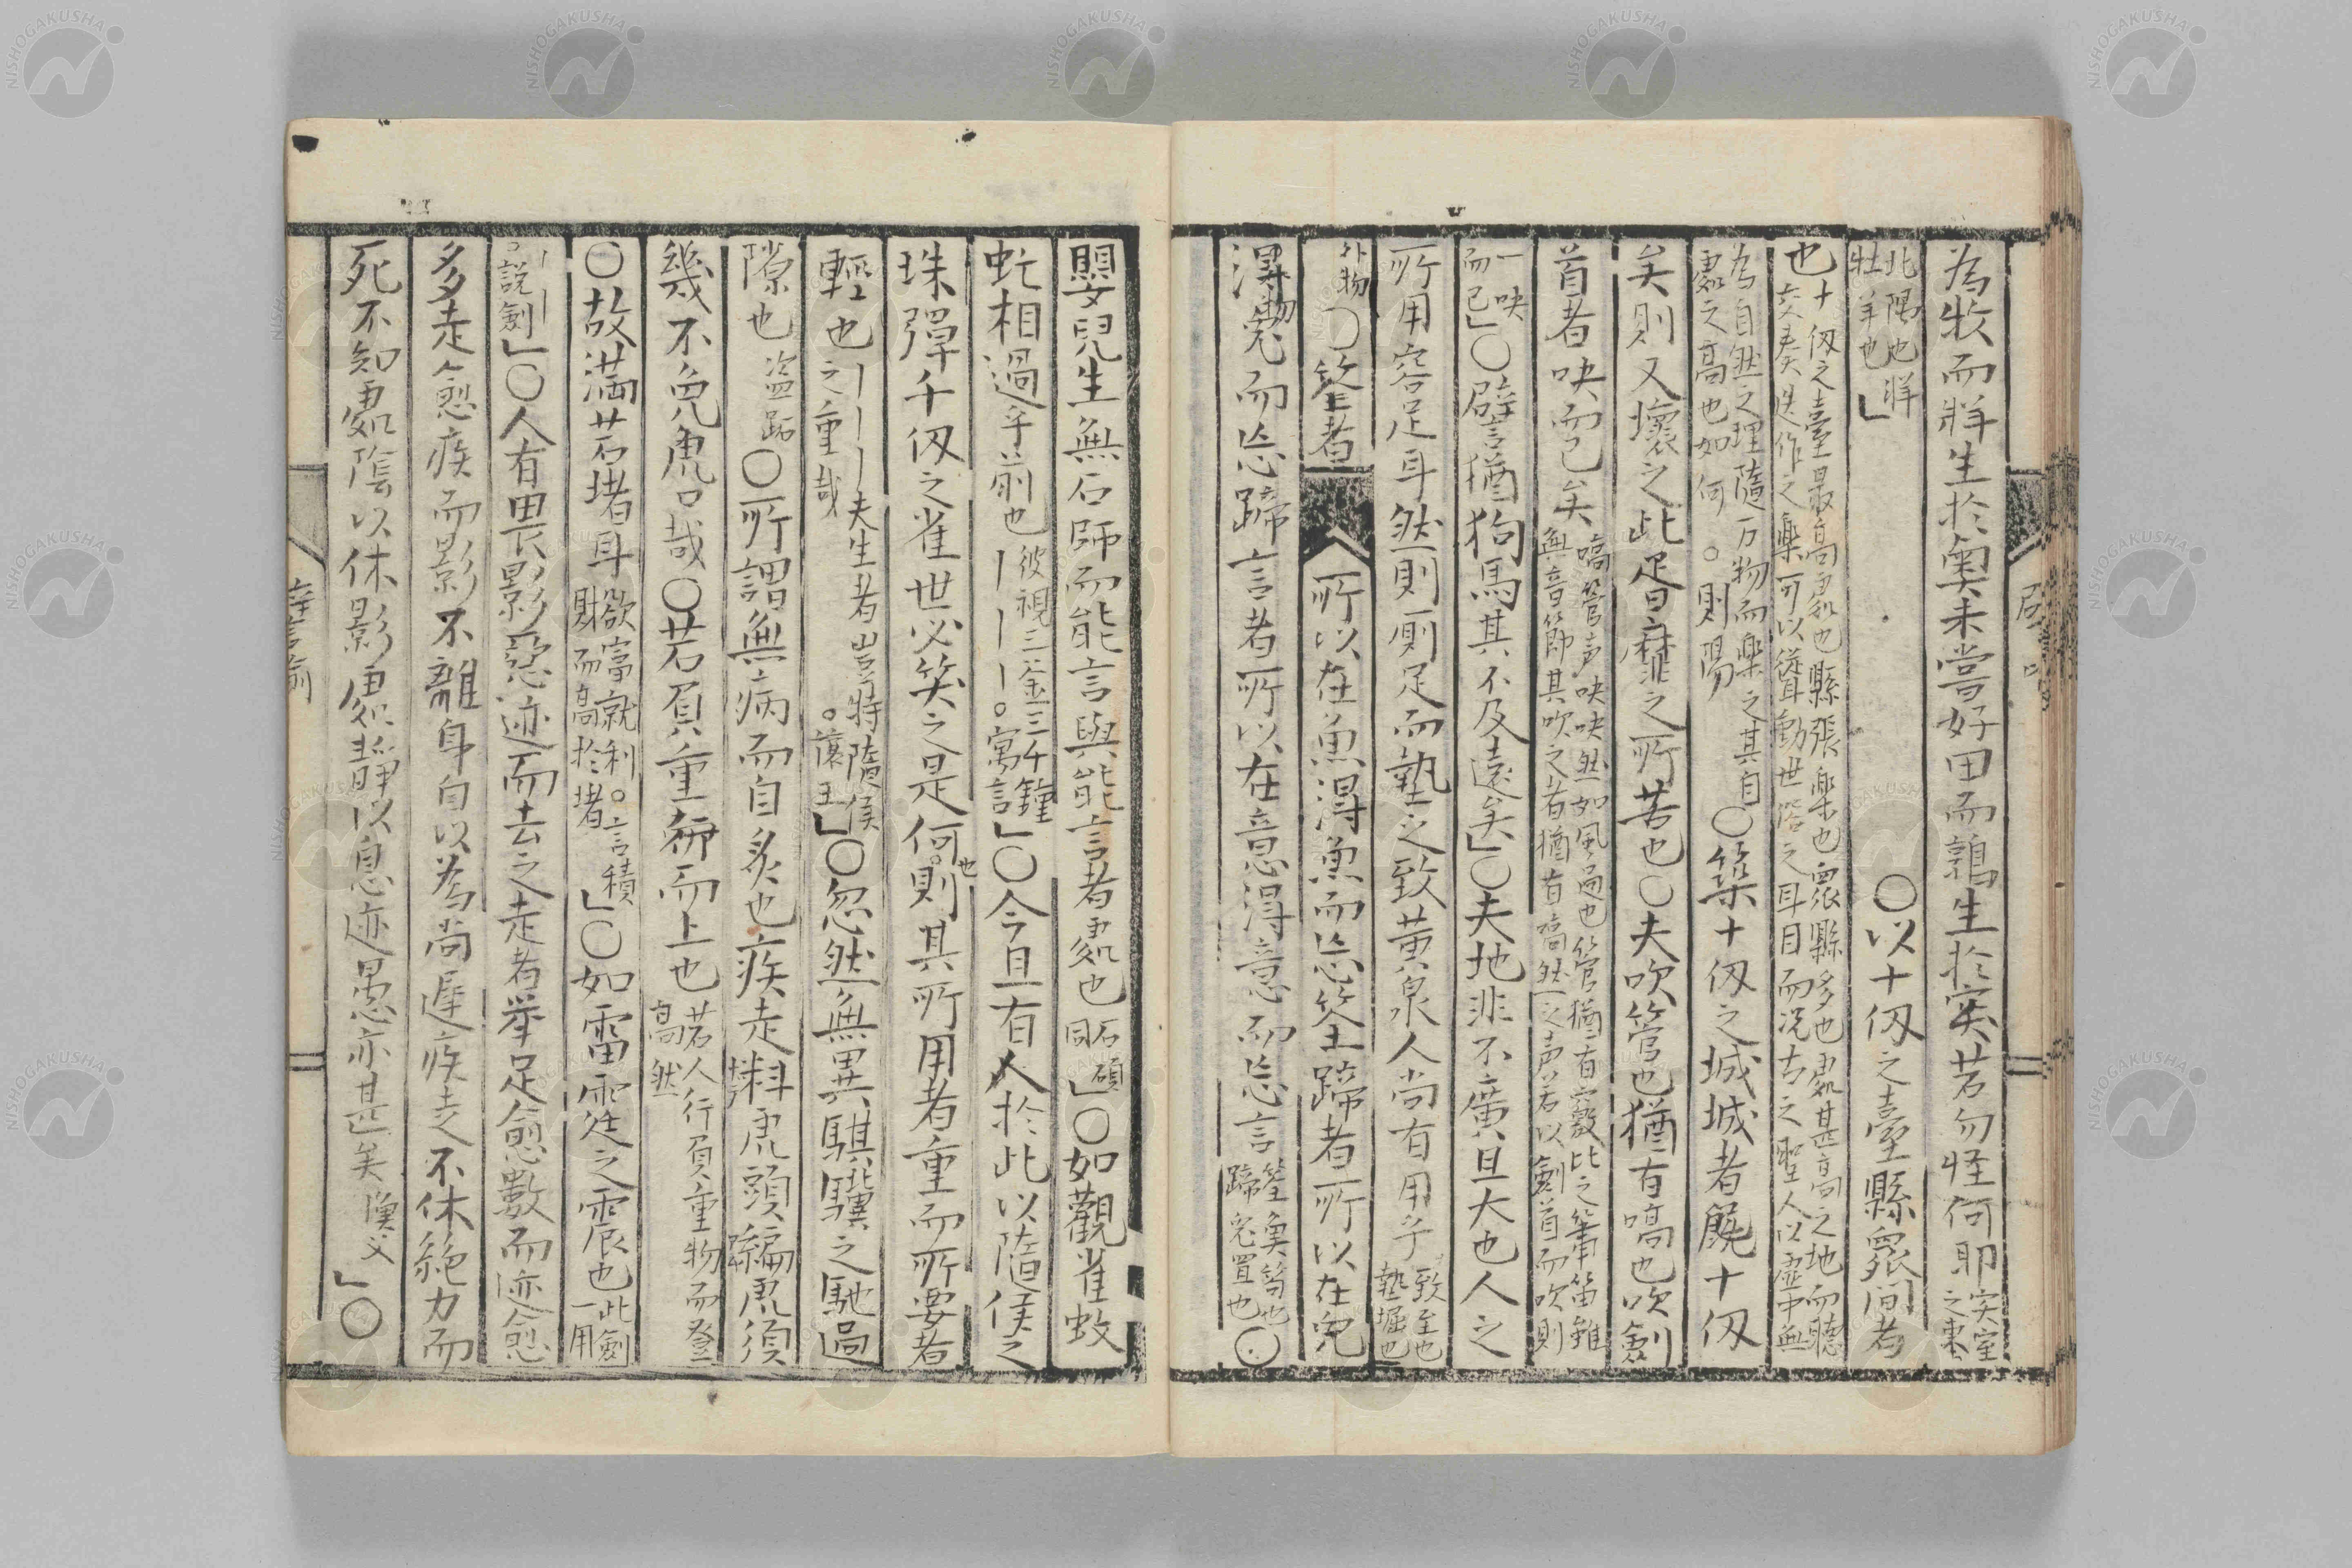 為牧而牂生於奧未嘗好田而鶉生於宎若勿怪何耶宎室之東
北隅也牂牡羊也」○以十仭之臺縣衆间者
也十仭之臺最高處也縣張樂也衆縣多也處甚高之地而聽交奏迭作之樂可以聳動世俗之耳目而况古之聖人以虛中無
為自然之理隨万物而樂之其自處之高也如何。則陽○築十仭之城城者旣十仭
矣則又壞之此胥靡之所苦也○夫吹管也猶有嗃也吹劍
首者吷而已矣嗃管声吷吷然如風過也管猶有竅比之簫笛雖無音節其吹之者猶有嗃然之声若以劍首而吹則
一吷而已」○譬猶狗馬其不及遠矣」○夫地非不廣且大也人之
所用容足耳然則厠足而墊之致黄泉人尚有用乎致至也墊掘也
外物○筌者所以在魚得魚而忘筌蹄者所以在兔
得兔而忘蹄言者所以在意得意而忘言筌魚笱也蹄兔罝也○
嬰兒生無石師而能言與能言者處也石碩同」○如觀雀蚊
虻相過乎前也彼視三釜三千鍾｜｜｜。寓言」○今且有人於此以隨侯之
珠彈千仭之雀世必笑之是何也。則其所用者重而所要者
輕也｜｜｜夫生者豈特隨侯之重哉。讓王」○忽然無異騏驥之馳過
隙也盗跖○所謂無病而自灸也疾走料虎頭編虎須
幾不免虎口哉○若負重行而上也若人行負重物而登高然
○故満若堵耳欲富就利。言積財而高於堵」○如雷霆之震也此劍一用
｜｜。説劍」○人有畏影惡迹而去之走者举足愈數而迹愈
多走愈疾而影不離身自以為尚遲疾走不休絶力而
死不知處陰以休影處静以息迹愚亦甚矣漁父」○